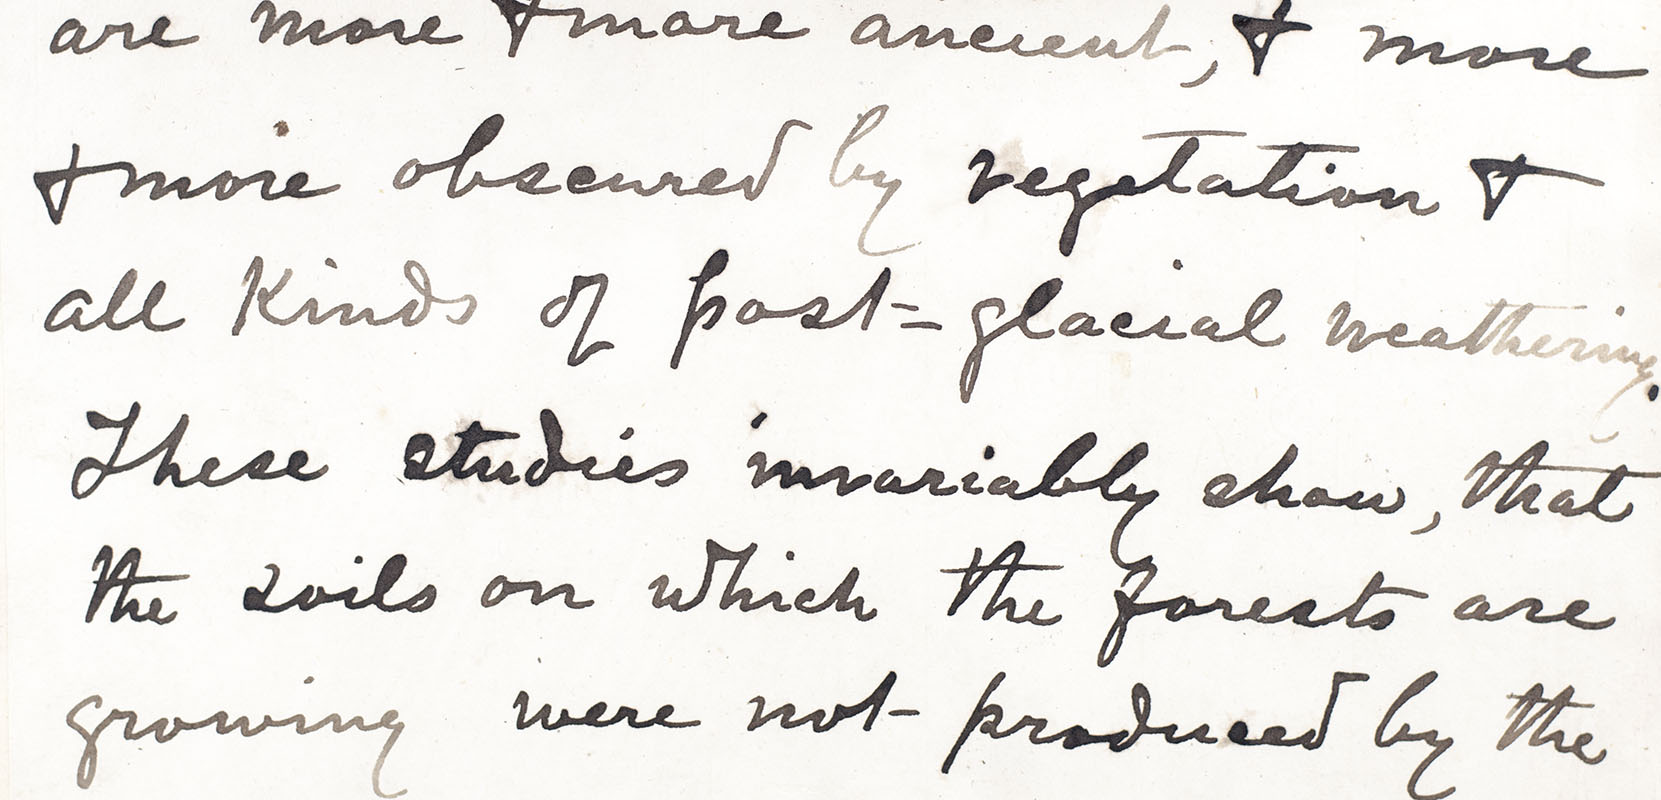 are more & more ancient, & more
& more obscured by vegetation &
all kinds of post-glacial weathering.
These studies invariably show, that
the soils on which the forests are
growing were not produced by the